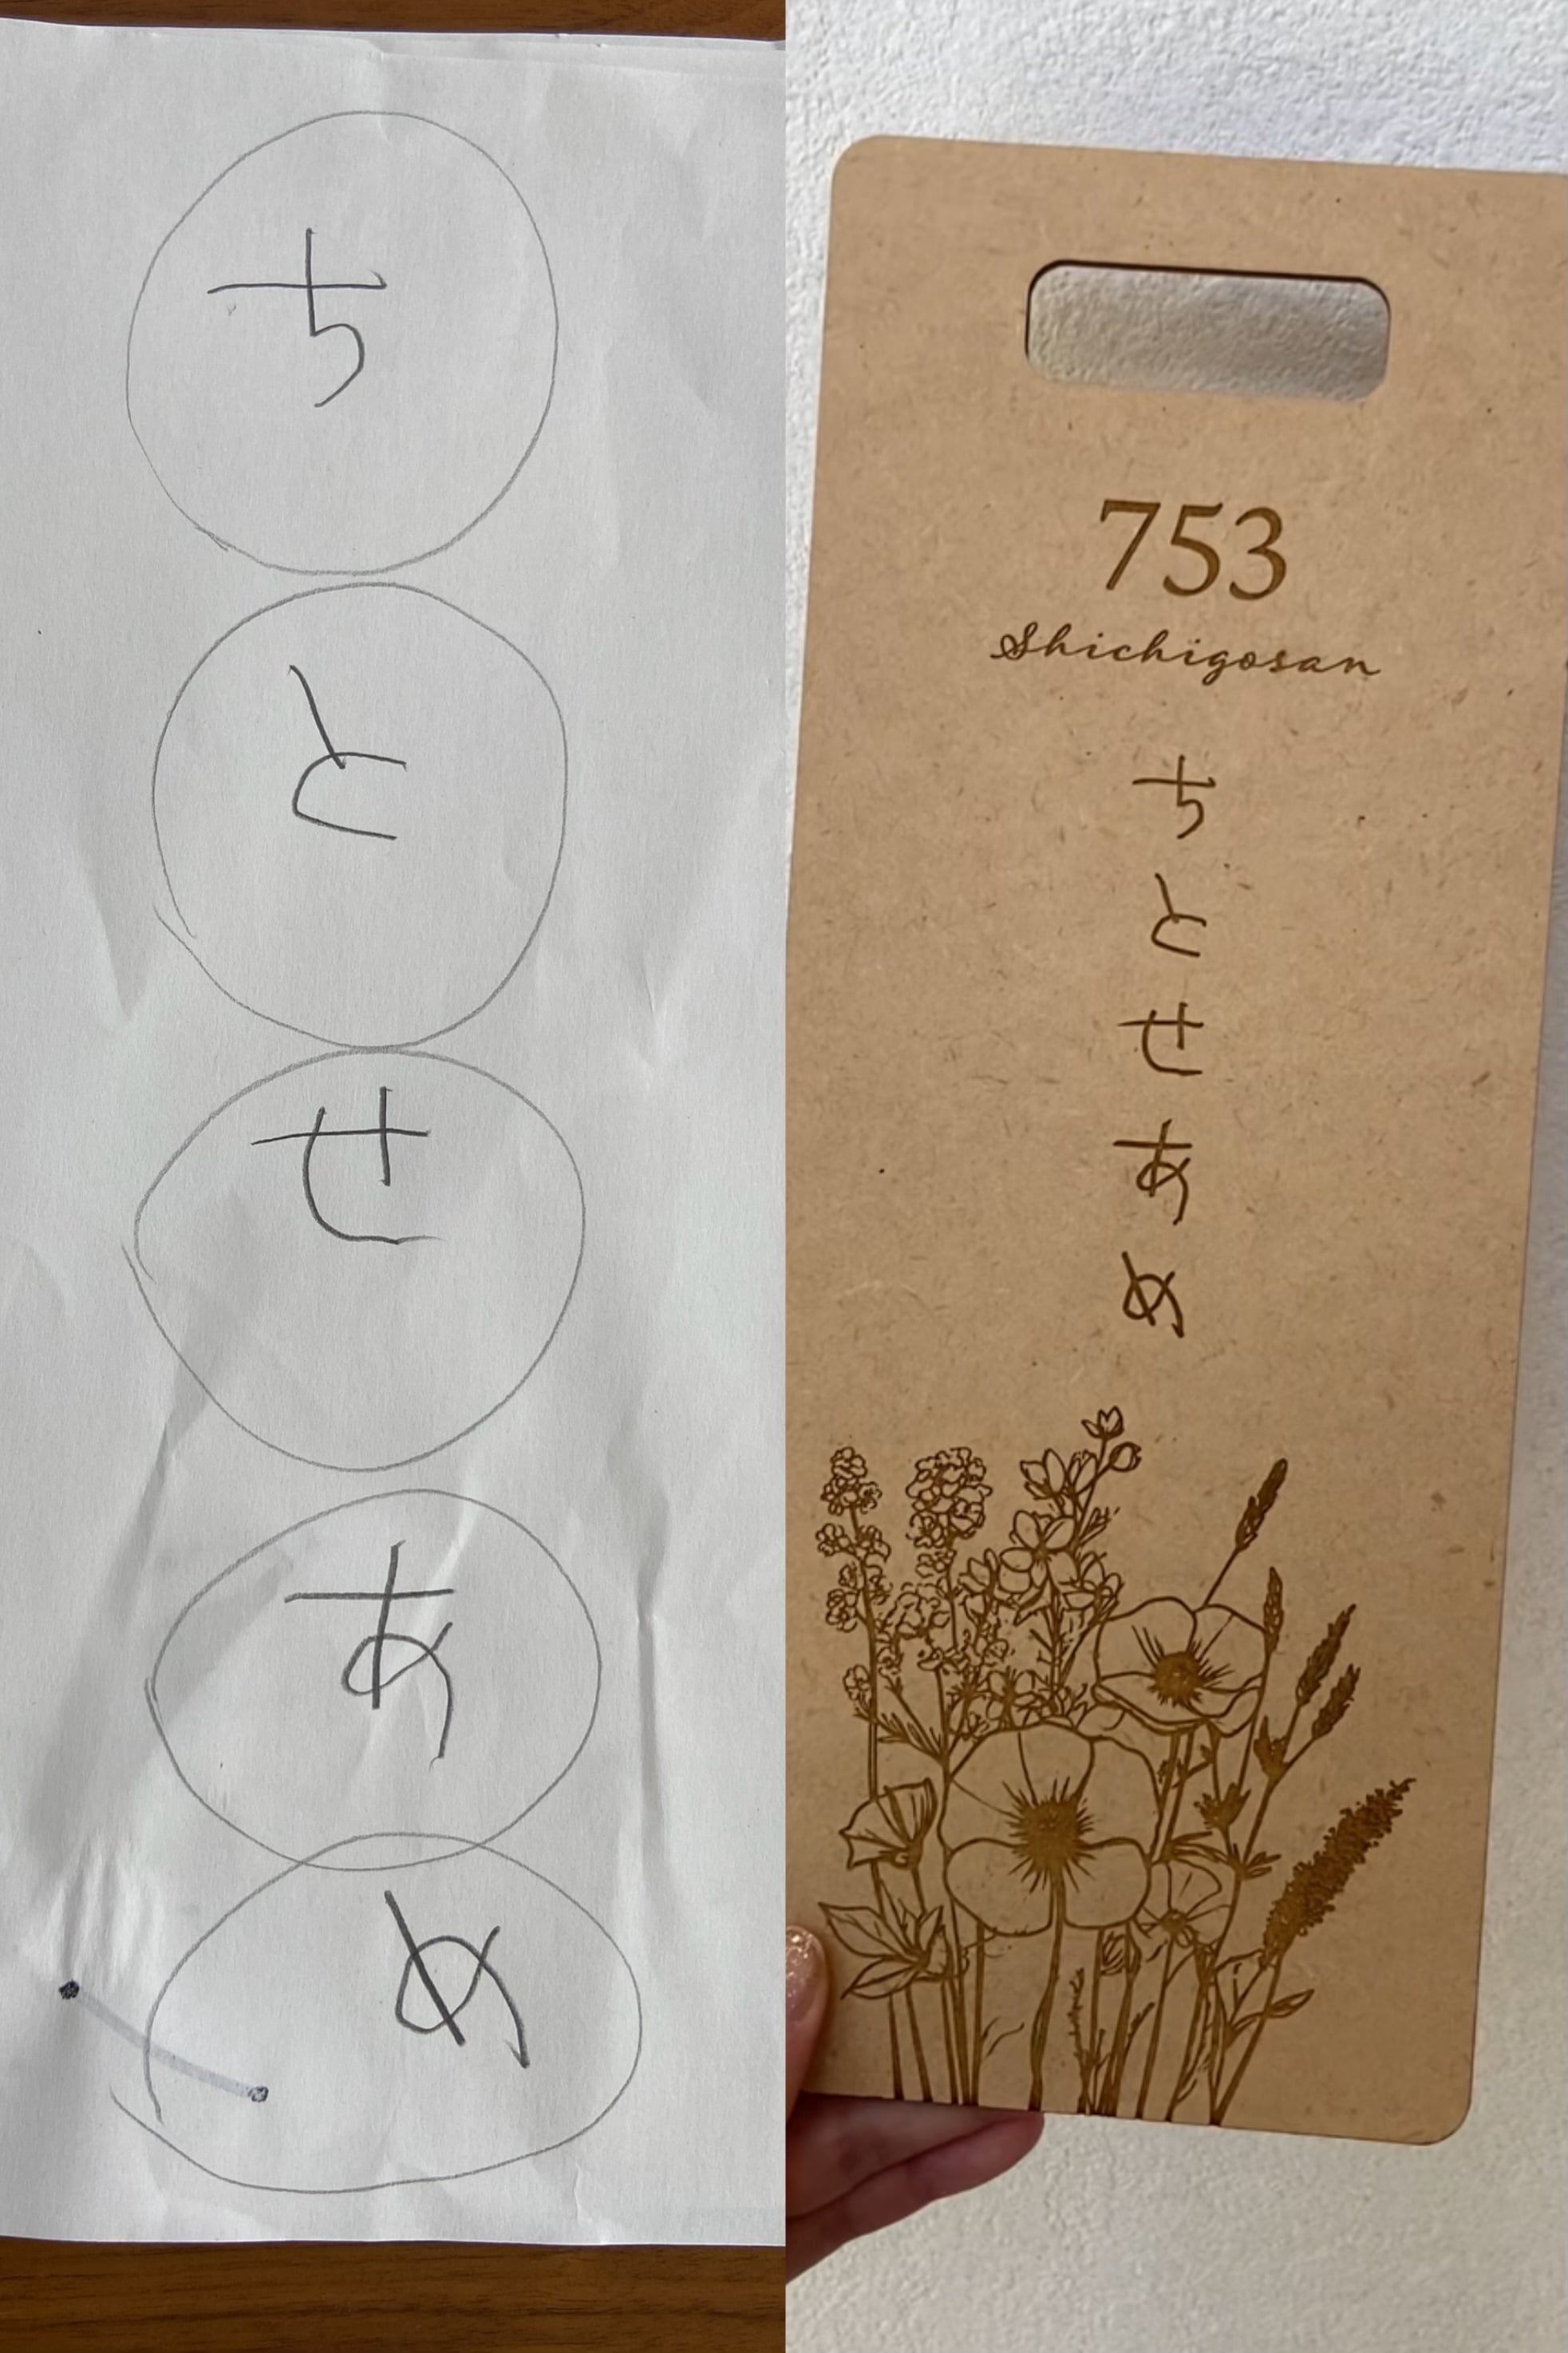 ちとせあめ
753
Shichigosan
ちとせあめ